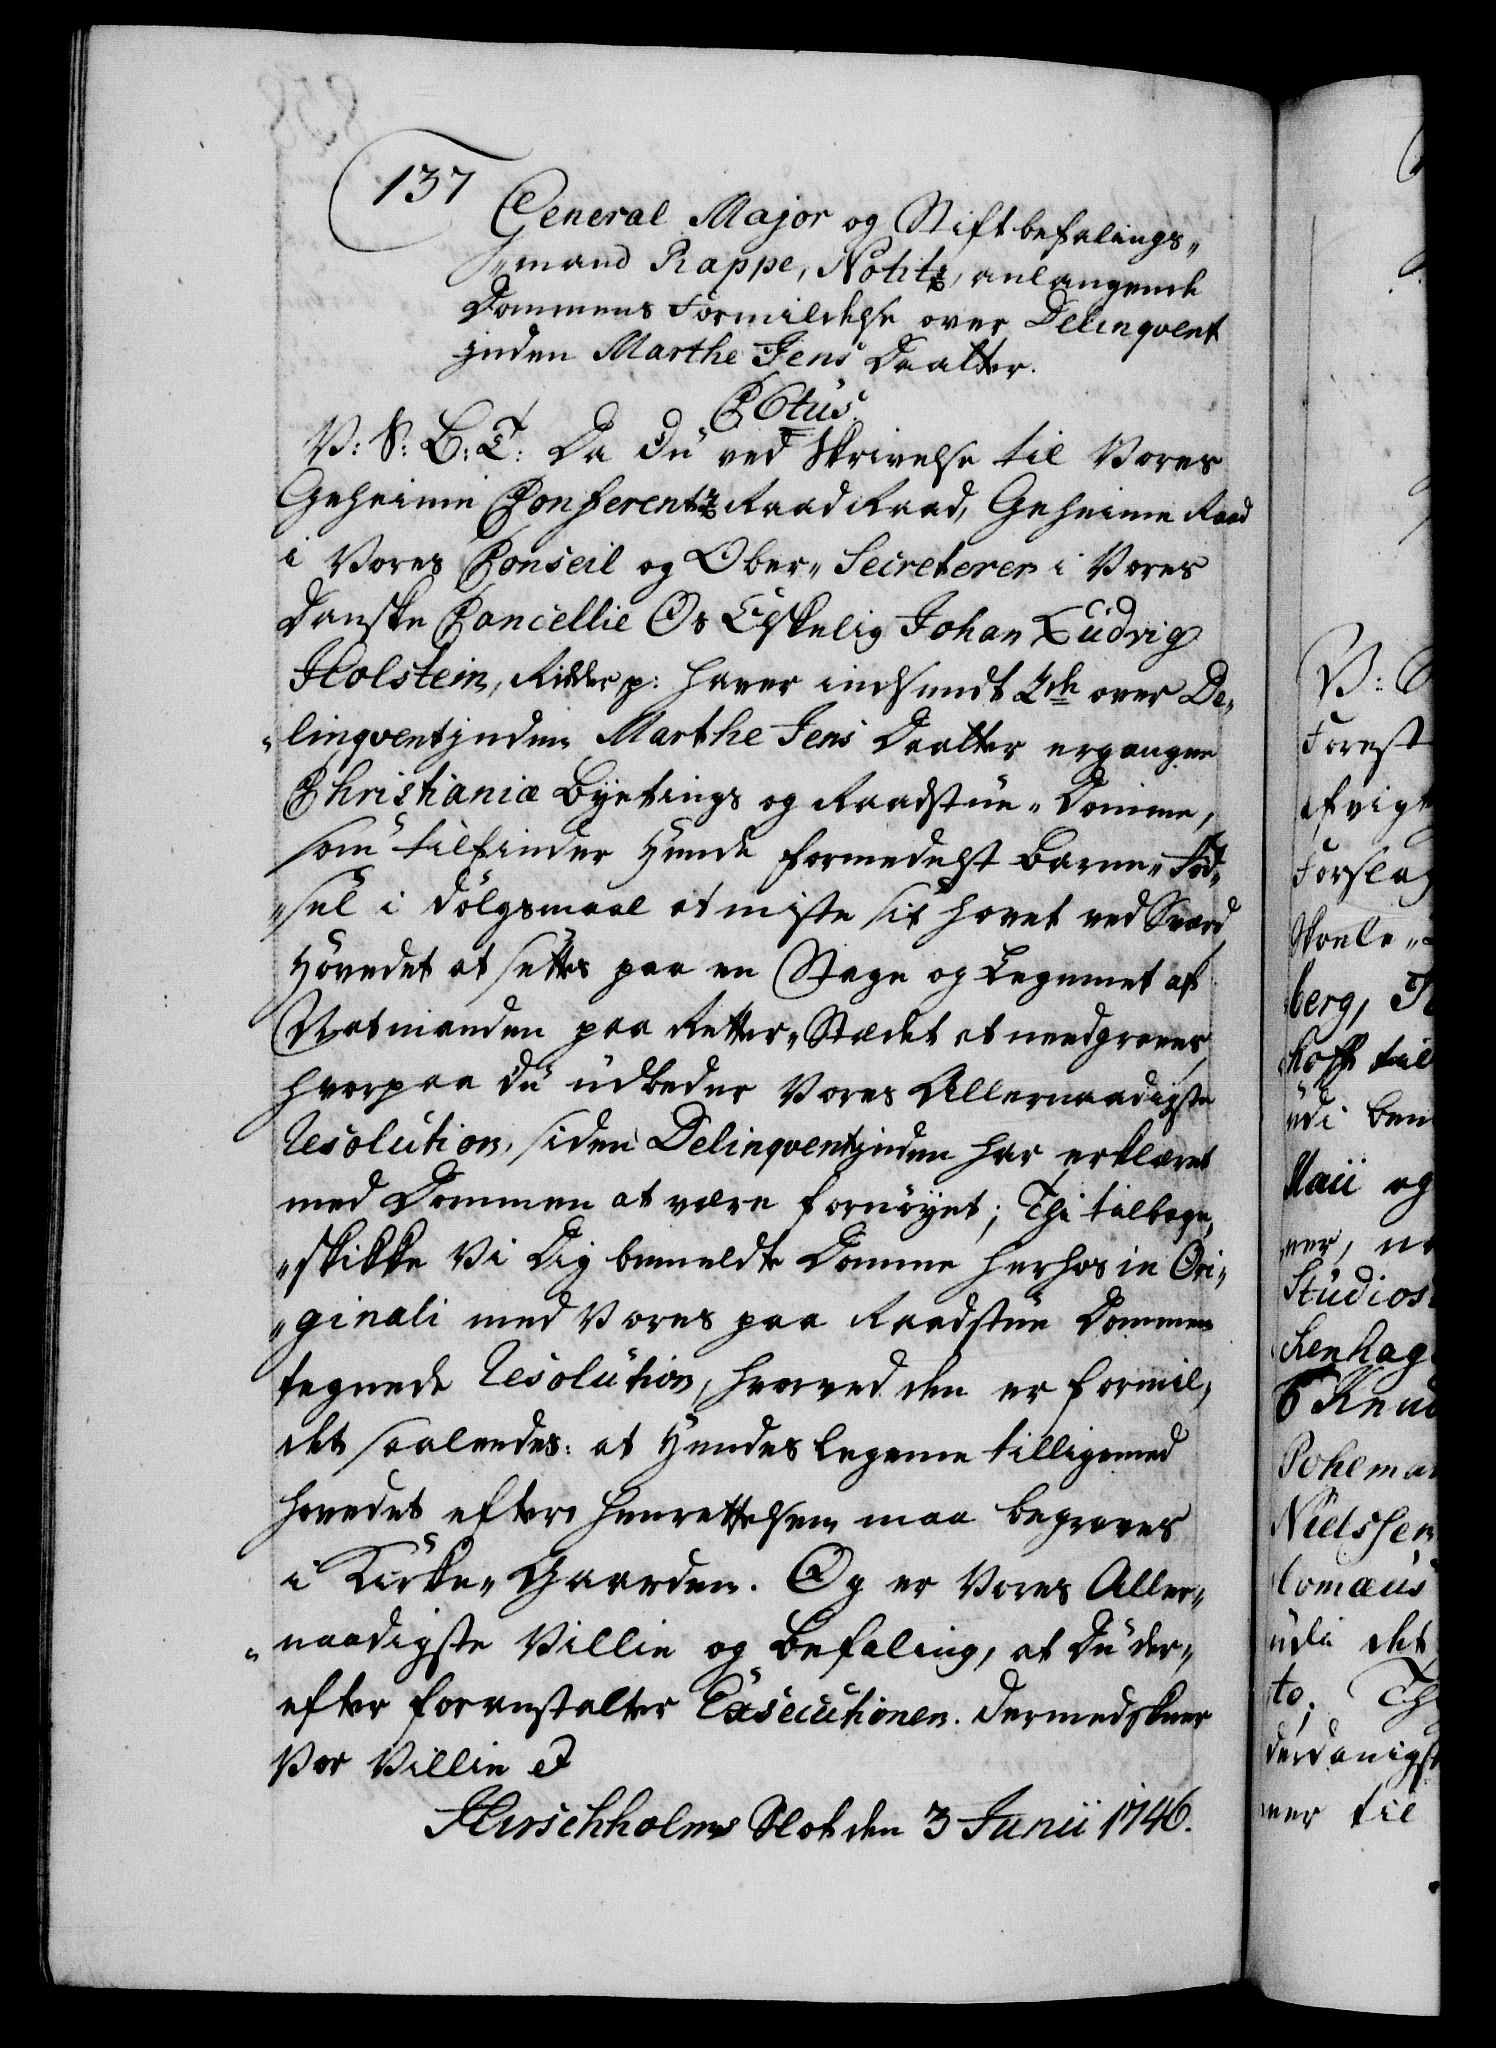 137
General Major og Stiftbefalings„
„mand Rappe, Notitz, anlangende
Dommens Formildelse over Delinqvent
inden Marthe Jens Daatter.
C6tus.
V: S: B: T: Da du ved Skrivelse til Vores
Geheime Conferentz Raad Raad, Geheime Raad
i Vores Conseil og Ober„ Secreterer i Vores
Danske Cancellie Os Elskelig Johan Ludvig
Holstein, Ridder p: haver indsendt 2de over De„
„linqventinden Marthe Jens Daatter ergangne
Christianiæ Byetings og Raadstue„ Domme,
som tilfinder Hende formedelst Barne„ Fød„
„sel i dølgsmaal at miste sit hovet ved Sværd
Hovedet at settes paa en Stage og Legemet af
Natmanden paa Retter„ Stædet at needgraves,
hvorpaa du udbeder Vores Allernaadigste
Resolution, siden Delinqventinden har erklæret
med Dommen at være fornøyet; Thi tilbage„
„skikke Vi Dig bemeldte Domme herhos in Ori„
„ginali med Vores paa Raadstue Dommen
tegnede Resolution, hvorved den er formil„
det saaledes: at Hendes Legeme tilligemed
hovedet efter henrettelsen maa begraves
i Kirke„ Gaarden. Og er Vores Aller„
„naadigste Villie og Befaling, at du der„
efter foranstalter Exsecutionen. dermed skeer
Vor Villie
Hirschholms Slot den 3 Junii 1746.
V:
Forest
Forslag
Skoele„
berg,
til
udi ben
Maii og
ner,
Studios
Knud
Nielssen
udi det
to. Th
derdanigst
ner til